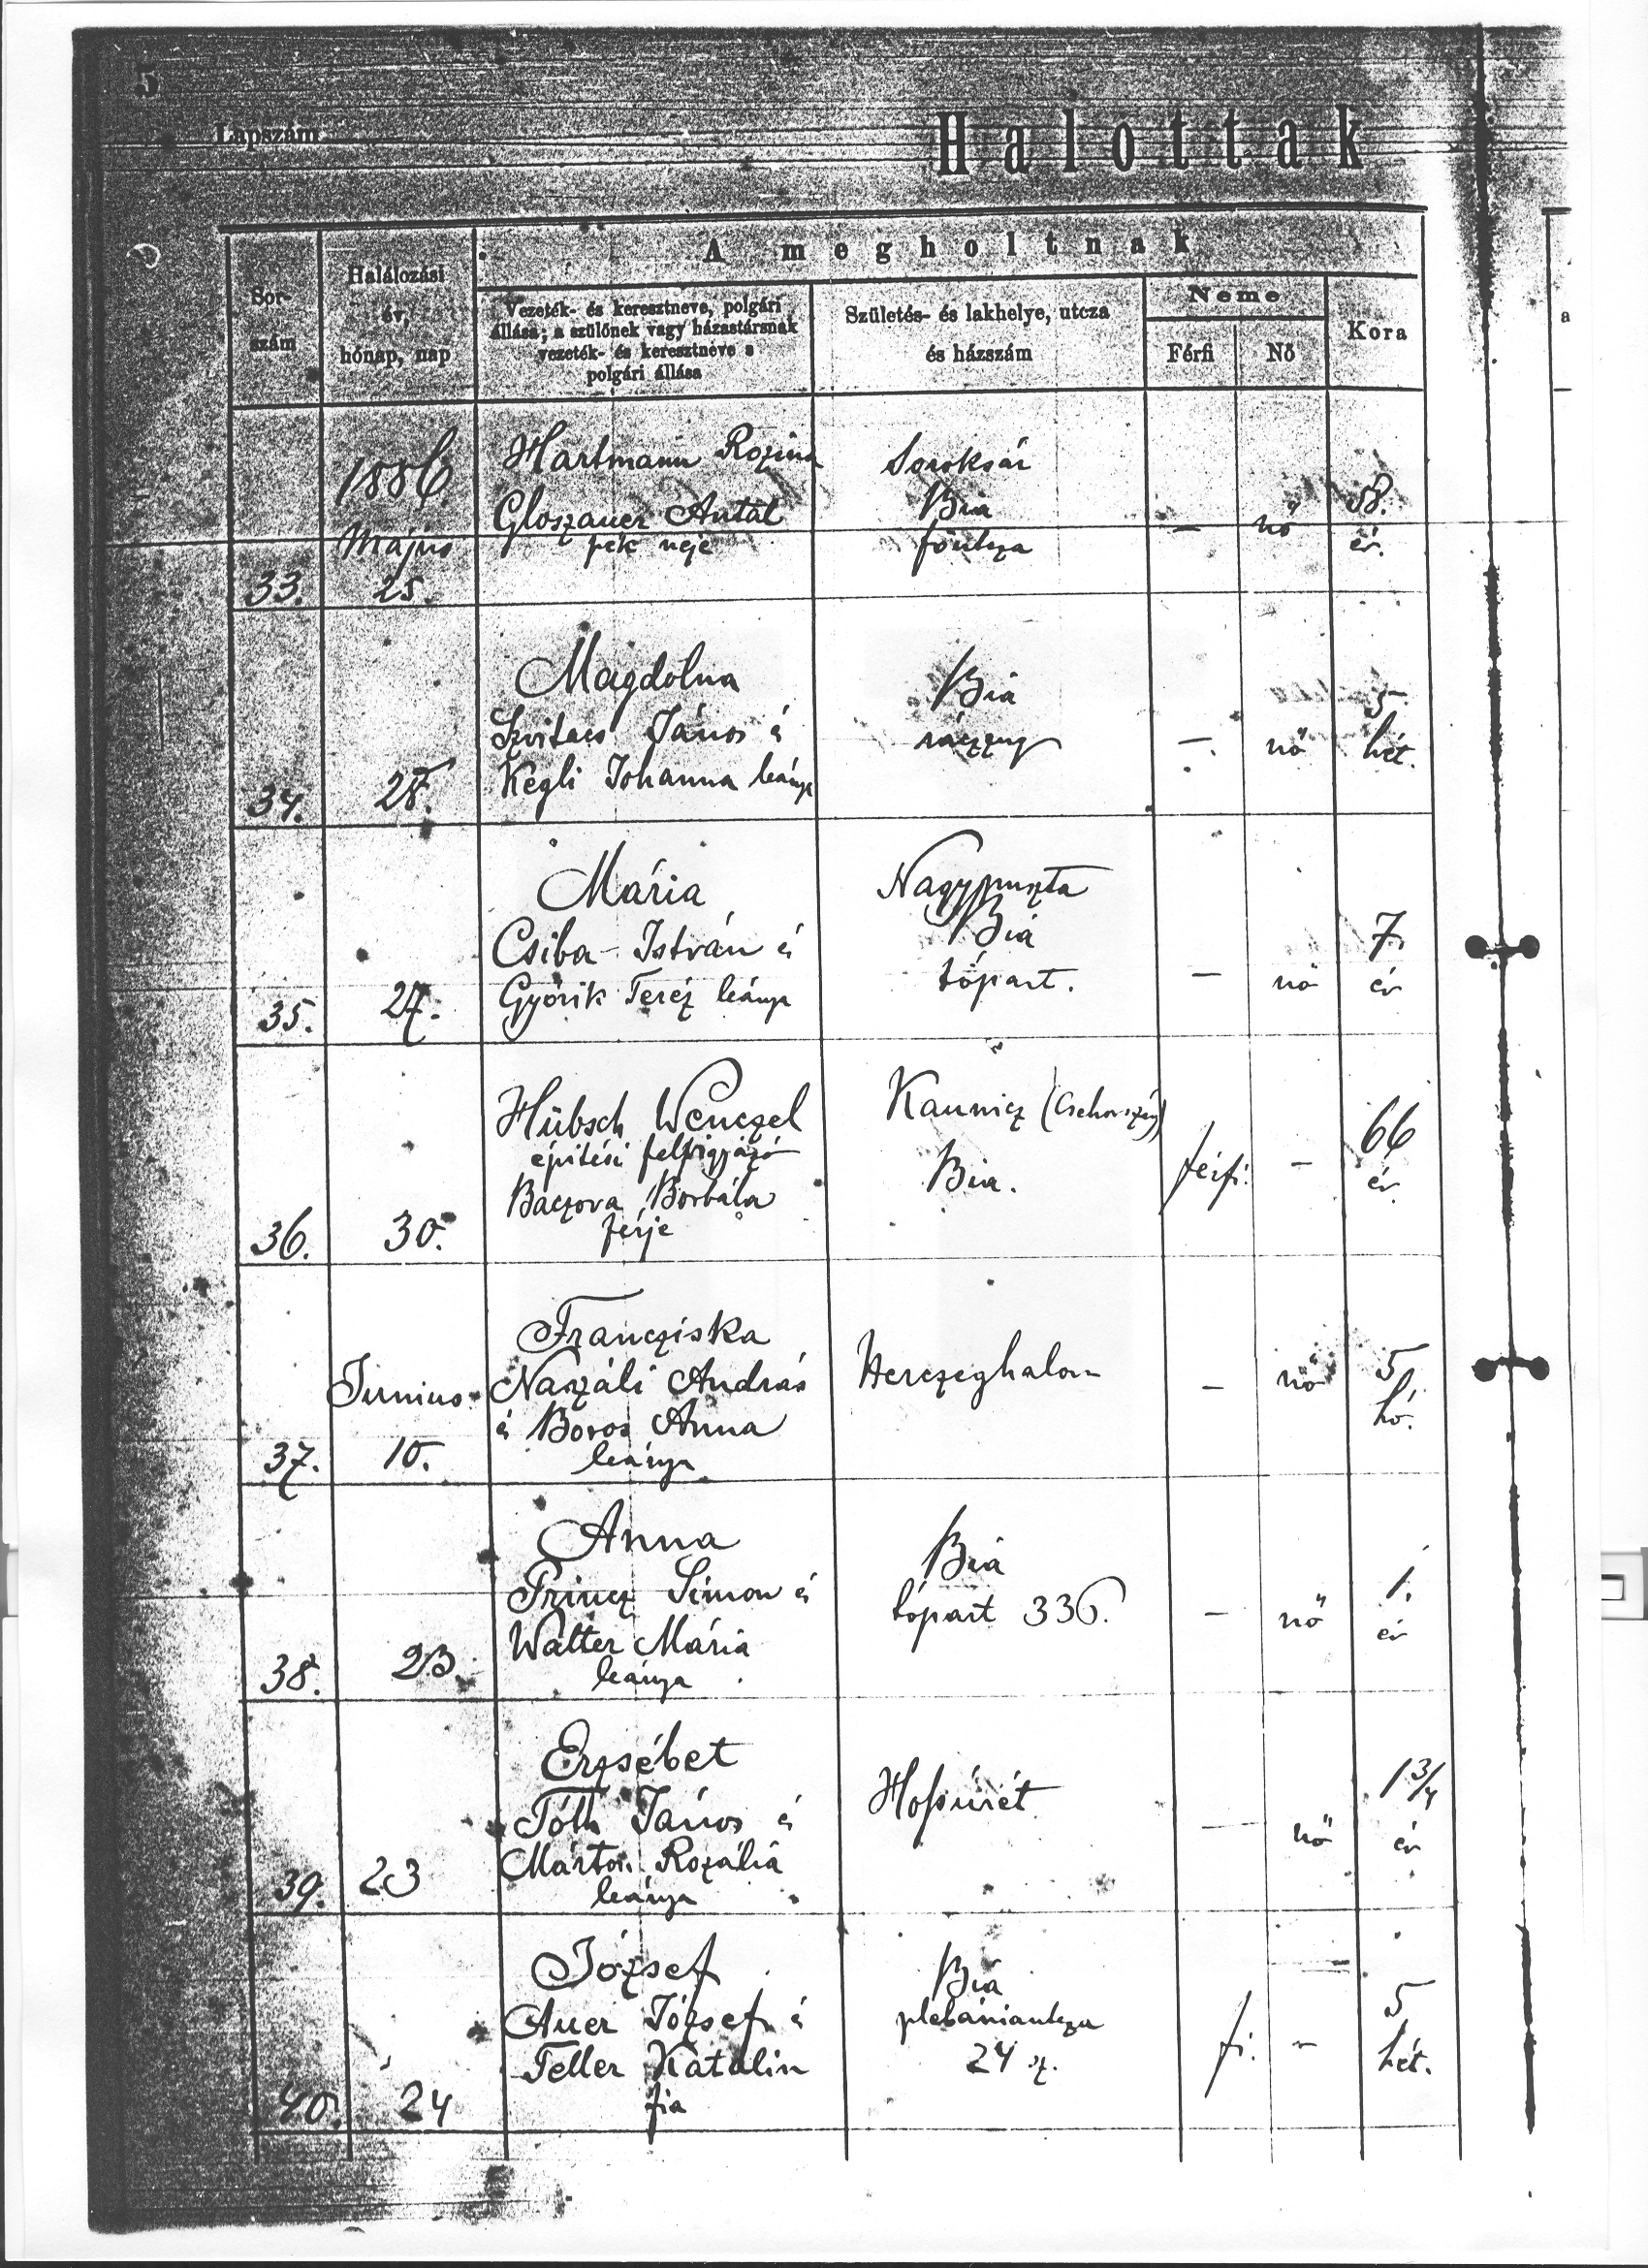 5
Lapszám
Halottak
A megholtnak
Sor-
szám
Halálozási
év,
hónap, nap
Vezeték- és keresztneve, polgári
állása; a szülőnek vagy házastársnak
vezeték- és keresztneve s
polgári állása
Születés- és lakhelye, utcza
és házszám
Neme
Férfi
Nő
Kora
33.
1886
Május
25.
Hartmann Rozina
Gloszauer Antal
pék neje
Soroksár
Bia
főutcza
—
nő
58.
év.
34.
28.
Magdolna
Szvitacs János é
Kegli Johanna leánya
Bia
—
nő
5
hét.
35.
27.
Mária
Csiba István é
Győrik Teréz leánya
Nagypuszta
Bia
tópart.
—
nő
7
év
36.
30.
Hübsch Wenczel
építési felvigyázó
Baczova Borbála
férje
Kaunicz (Csehország)
Bia.
férfi.
—
66
év.
37.
Junius
10.
Francziska
Naszáli András
é Boros Anna
leánya
Herczeghalom
—
nő
5
hó.
38.
23.
Anna
Princz Simon é
Walter Mária
leánya
Bia
tópart 336.
—
nő
1.
év
39.
23
Erzsébet
Tóth János é
Márton Rozália
leánya
—
nő
1 3/4
év
40.
24
József
Auer József é
Teller Katalin
fia
Bia
plebániautcza
24 sz.
fi.
—
5
hét.